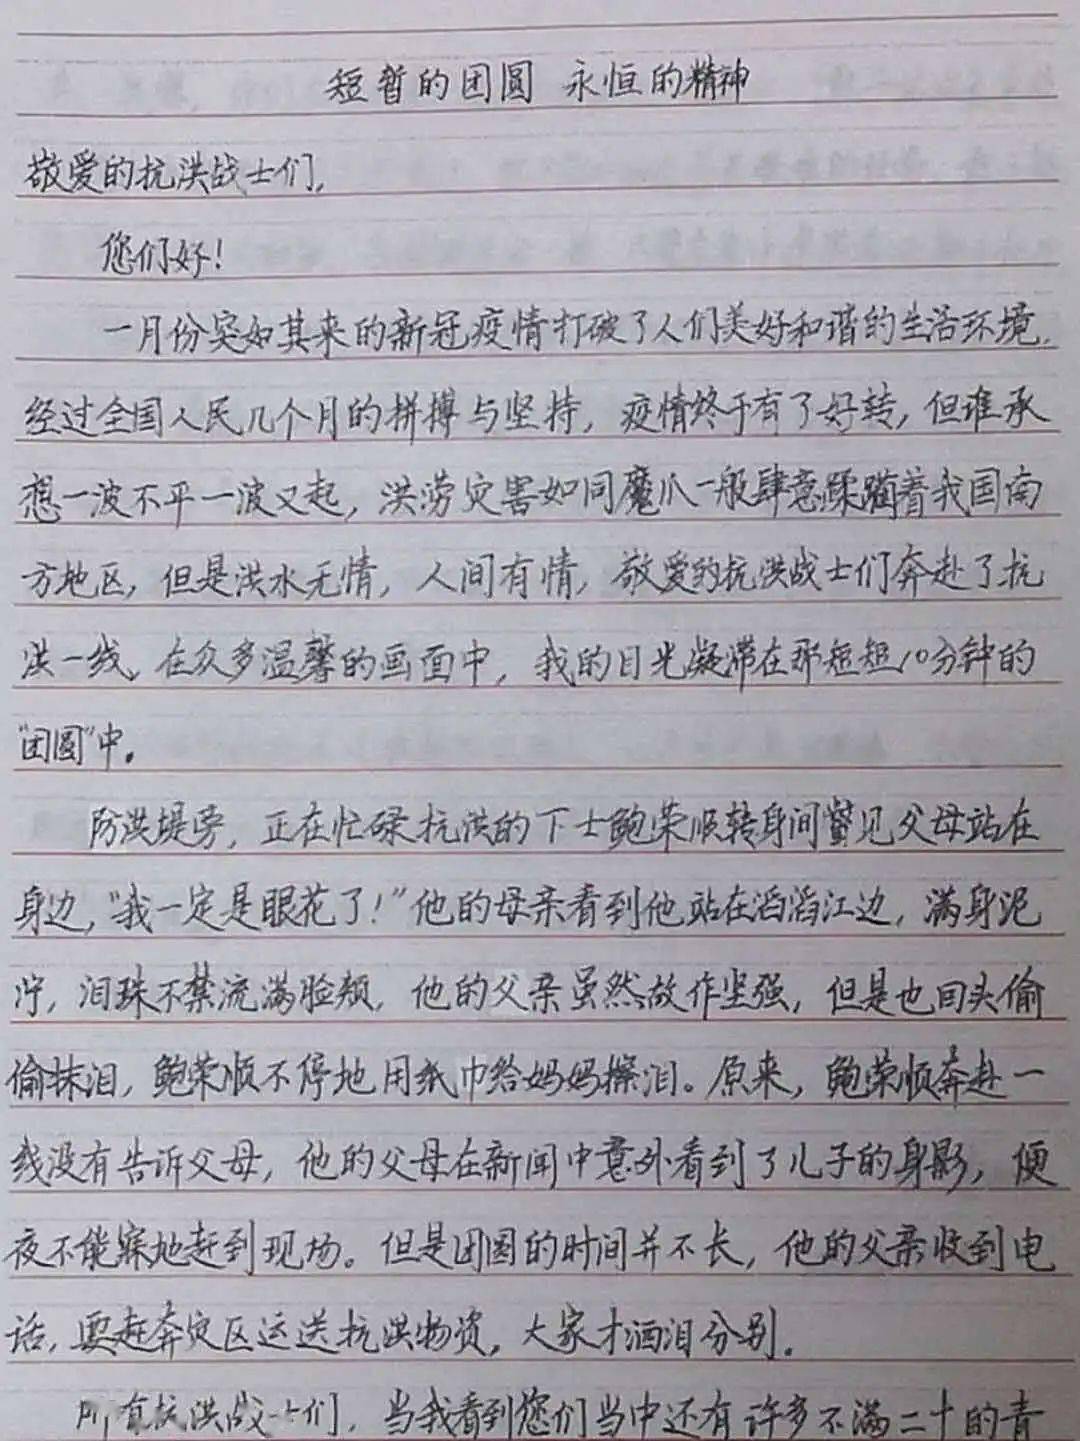 短暂的团圆 永恒的精神
敬爱的抗洪战士们,
您们好!
一月份突如其来的新冠疫情打破了人们美好和谐的生活环境,
经过全国人民几个月的拼搏与坚持,疫情终于有了好转,但谁承
想一波不平一波又起,洪涝灾害如同魔爪一般肆意蹂躏着我国南
方地区,但是洪水无情,人间有情,敬爱的抗洪战士们奔赴了抗
洪一线、在众多温馨的画面中,我的目光凝滞在那短短10分钟的
"团圆"中。
防洪堤旁,正在忙碌抗洪的下士鲍荣顺转身间瞥见父母站在
身边,"我一定是眼花了!"他的母亲看到他站在滔滔江边,满身泥
泞,泪珠不禁流满脸颊,他的父亲虽然故作坚强,但是也回头偷
偷抹泪,鲍荣顺不停地用纸巾给妈妈擦泪。原来,鲍荣顺奔赴一
线没有告诉父母,他的父母在新闻中意外看到了儿子的身影,便
夜不能寐地赶到现场。但是团圆的时间并不长,他的父亲收到电
话,要赶奔灾区运送抗洪物资,大家才洒泪分别。
所有抗洪战士们,当我看到您们当中还有许多不满二十的青